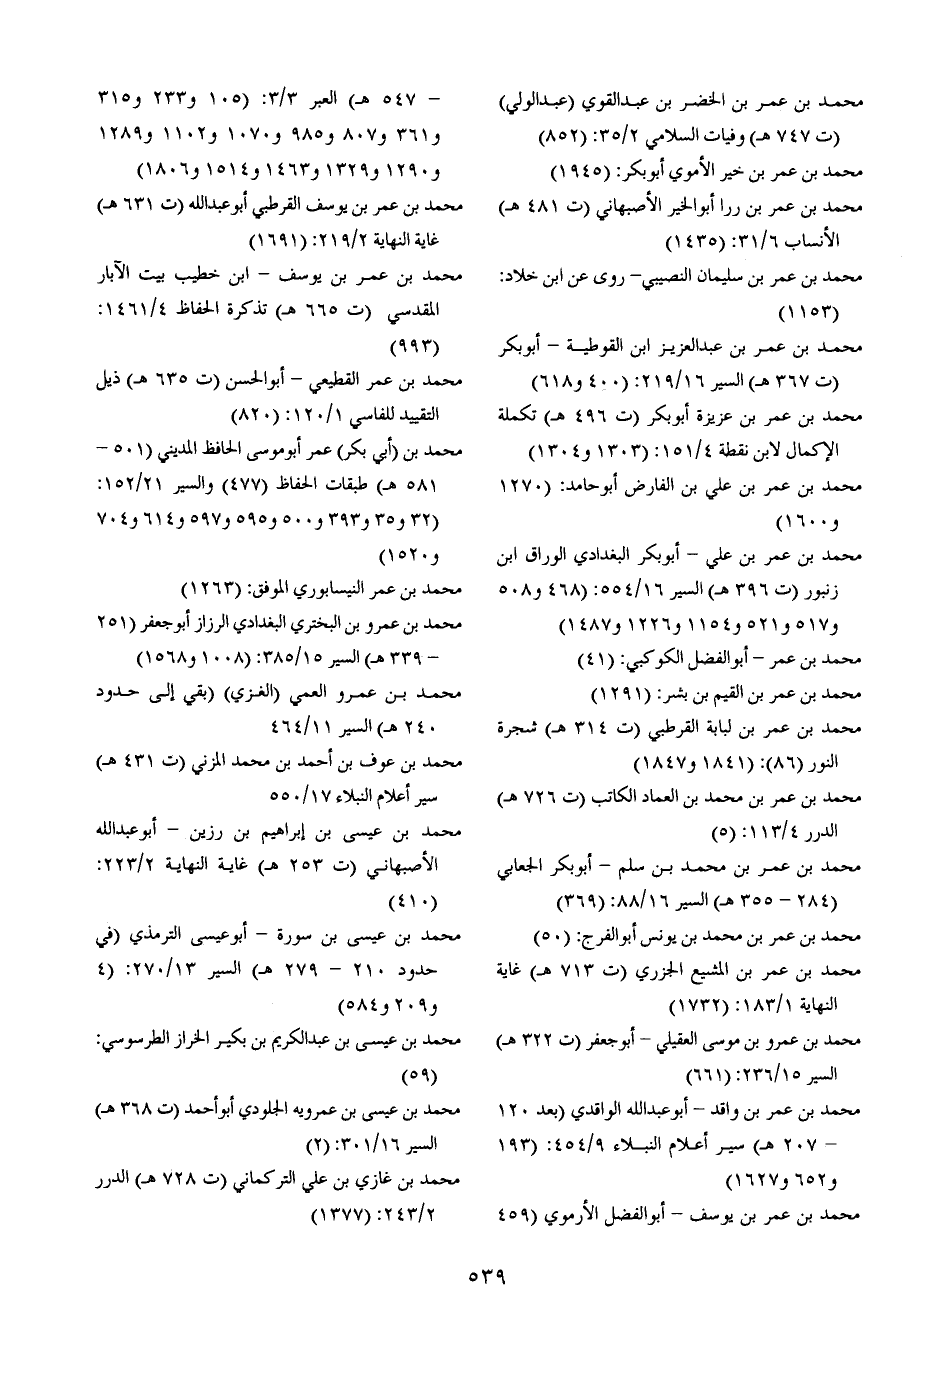 محمد بن عمر بن الخضر بن عبدالقوي (عبدالولي)
(ت ٧٤٧ هـ) وفيات السلامي ٣٥/٢: (٨٥٢)
محمد بن عمر بن خير الأموي أبوبكر: (١٩٤٥)
محمد بن عمر بن ررا أبوالخير الأصبهاني (ت ٤٨١ هـ)
الأنساب ٣١/٦: (١٤٣٥)
محمد بن عمر بن سليمان النصيبي– روى عن ابن خلاد:
(١١٥٣)
محمد بن عمر بن عبدالعزيز ابن القوطية – أبوبكر
(ت ٣٦٧ هـ) السير ٢١٩/١٦: (٤٠٠ و٦١٨)
محمد بن عمر بن عزيزة أبوبكر (ت ٤٩٦ هـ) تكملة
الإكمال لابن نقطة ١٥١/٤: (١٣٠٣ و١٣٠٤)
محمد بن عمر بن علي بن الفارض أبوحامد: (١٢٧٠
و١٦٠٠)
محمد بن عمر بن علي – أبوبكر البغدادي الوراق ابن
زنبور (ت ٣٩٦ هـ) السير ٥٥٤/١٦: (٤٦٨ و٥٠٨
و٥١٧ و٥٢١ و١١٥٤ و١٢٢٦ و١٤٨٧)
محمد بن عمر – أبوالفضل الكوكبي: (٤١)
محمد بن عمر بن القيم بن بشر: (١٢٩١)
محمد بن عمر بن لبابة القرطبي (ت ٣١٤ هـ) شجرة
النور (٨٦): (١٨٤١ و١٨٤٧)
محمد بن عمر بن محمد بن العماد الكاتب (ت ٧٢٦ هـ)
الدرر ١١٣/٤: (٥)
محمد بن عمر بن محمد بن سلم – أبوبكر الجعابي
(٢٨٤ – ٣٥٥ هـ) السير ٨٨/١٦: (٣٦٩)
محمد بن عمر بن محمد بن يونس أبوالفرج: (٥٠)
محمد بن عمر بن المشيع الجزري (ت ٧١٣ هـ) غاية
النهاية ١٨٣/١: (١٧٣٢)
محمد بن عمرو بن موسى العقيلي – أبوجعفر (ت ٣٢٢ هـ)
السير ٢٣٦/١٥: (٦٦١)
محمد بن عمر بن واقد – أبوعبدالله الواقدي (بعد ١٢٠
– ٢٠٧ هـ) سير أعلام النبلاء ٤٥٤/٩: (١٩٣
و٦٥٢ و١٦٢٧)
محمد بن عمر بن يوسف – أبوالفضل الأرموي (٤٥٩
– ٥٤٧ هـ) العبر ٣/٣: (١٠٥ و٢٣٣ و٣١٥
و٣٦١ و٨٠٧ و٩٨٥ و١٠٧٠ و١١٠٢ و١٢٨٩
و١٢٩٠ و١٣٢٩ و١٤٦٣ و١٥١٤ و١٨٠٦)
محمد بن عمر بن يوسف القرطبي أبوعبدالله (ت ٦٣١ هـ)
غاية النهاية ٢١٩/٢: (١٦٩١)
محمد بن عمر بن يوسف – ابن خطيب بيت الآبار
المقدسي (ت ٦٦٥ هـ) تذكرة الحفاظ ١٤٦١/٤:
(٩٩٣)
محمد بن عمر القطيعي – أبوالحسن (ت ٦٣٥ هـ) ذيل
التقييد للفاسي ١٢٠/١: (٨٢٠)
محمد بن (أبي بكر) عمر أبوموسى الحافظ المديني (٥٠١ –
٥٨١ هـ) طبقات الحفاظ (٤٧٧) والسير ١٥٢/٢١:
(٣٢ و٣٥ و٣٩٣ و٥٠٠ و٥٩٥ و٥٩٧ و٦١٤ و٧٠٤
و١٥٢٠)
محمد بن عمر النيسابوري الموفق: (١٢٦٣)
محمد بن عمرو بن البختري البغدادي الرزاز أبوجعفر (٢٥١
– ٣٣٩ هـ) السير ٣٨٥/١٥: (١٠٠٨ و١٥٦٨)
محمد بن عمرو العمي (الغزي) (بقي إلى حدود
٢٤٠ هـ) السير ٤٦٤/١١
محمد بن عوف بن أحمد بن محمد المزني (ت ٤٣١ هـ)
سير أعلام النبلاء ٥٥٠/١٧
محمد بن عيسى بن إبراهيم بن رزين – أبوعبدالله
الأصبهاني (ت ٢٥٣ هـ) غاية النهاية ٢٢٣/٢:
(٤١٠)
محمد بن عيسى بن سورة – أبوعيسى الترمذي (في
حدود ٢١٠ – ٢٧٩ هـ) السير ٢٧٠/١٣: (٤
و٢٠٩ و٥٨٤)
محمد بن عيسى بن عبدالكريم بن بكير الخراز الطرسوسي:
(٥٩)
محمد بن عيسى بن عمرويه الجلودي أبوأحمد (ت ٣٦٨ هـ)
السير ٣٠١/١٦: (٢)
محمد بن غازي بن علي التركماني (ت ٧٢٨ هـ) الدرر
٢٤٣/٢: (١٣٧٧)
٥٣٩